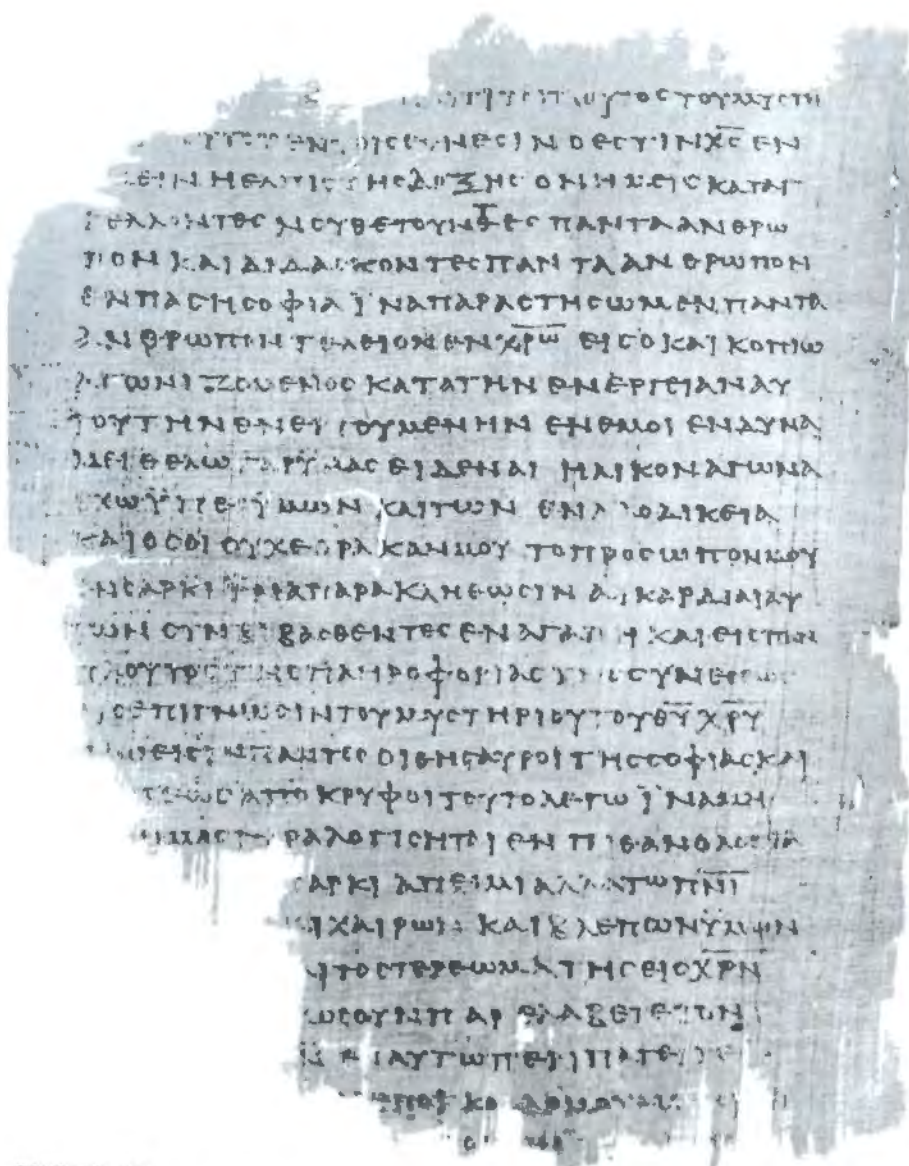 ΤΟΥ ΜΥCΤΗ
ΕΘΝΕCΙΝ Ο ΕCΤΙΝ ΧC ΕΝ
Η ΕΛΠΙC ΤΗC ΔΟΞΗC ΟΝ ΗΜΕΙC ΚΑΤΑΓ
ΓΕΛΛΟΝΤΕC ΝΟΥΘΕΤΟΥΝΤΕC ΠΑΝΤΑ ΑΝΘΡΩ
ΠΟΝ ΚΑΙ ΔΙΔΑCΚΟΝΤΕC ΠΑΝΤΑ ΑΝΘΡΩΠΟΝ
ΕΝ ΠΑCΗ CΟΦΙΑ ΪΝΑ ΠΑΡΑCΤΗCΩΜΕΝ ΠΑΝΤΑ
ΑΝΘΡΩΠΟΝ ΤΕΛΕΙΟΝ ΕΝ ΧΡΩ ΕΙC Ο ΚΑΙ ΚΟΠΙΩ
ΑΓΩΝΙΖΟΜΕΝΟC ΚΑΤΑ ΤΗΝ ΕΝΕΡΓΕΙΑΝ ΑΥ
ΤΟΥ ΤΗΝ ΕΝΕΡΓΟΥΜΕΝΗΝ ΕΝ ΕΜΟΙ ΕΝ ΔΥΝΑ
ΜΕΙ ΘΕΛΩ ΓΑΡ ΥΜΑC ΕΙΔΕΝΑΙ ΗΛΙΚΟΝ ΑΓΩΝΑ
ΕΧΩ ΫΠΕΡ ΫΜΩΝ ΚΑΙ ΤΩΝ ΕΝ ΛΑΟΔΙΚΕΙΑ
ΚΑΙ ΟCΟΙ ΟΥΧ ΕΟΡΑΚΑΝ ΜΟΥ ΤΟ ΠΡΟCΩΠΟΝ ΜΟΥ
ΕΝ CΑΡΚΙ ΪΝΑ ΠΑΡΑΚΛΗΘΩCΙΝ ΑΙ ΚΑΡΔΙΑΙ ΑΥ
ΤΩΝ CΥΝΒΙΒΑCΘΕΝΤΕC ΕΝ ΑΓΑΠΗ ΚΑΙ ΕΙC ΠΑΝ
ΠΛΟΥΤΟC ΤΗC ΠΛΗΡΟΦΟΡΙΑC ΤΗC CΥΝΕCΕΩC
ΕΙC ΕΠΙΓΝΩCΙΝ ΤΟΥ ΜΥCΤΗΡΙΟΥ ΤΟΥ ΘΥ ΧΡΥ
ΕΙCΙΝ ΠΑΝΤΕC ΟΙ ΘΗCΑΥΡΟΙ ΤΗC CΟΦΙΑC ΚΑΙ
ΑΠΟΚΡΥΦΟΙ ΤΟΥΤΟ ΛΕΓΩ ΪΝΑ ΜΗ
ΥΜΑC ΠΑΡΑΛΟΓΙCΗΤΑΙ ΕΝ ΠΙΘΑΝΟΛΟΓΙΑ
CΑΡΚΙ ΑΠΕΙΜΙ ΑΛΛΑ ΤΩ ΠΝΙ
ΧΑΙΡΩΝ ΚΑΙ ΒΛΕΠΩΝ ΫΜΩΝ
ΤΟ CΤΕΡΕΩΜΑ ΤΗC ΕΙC ΧΡΝ
ΩC ΟΥΝ ΠΑΡΕΛΑΒΕΤΕ ΤΟΝ
ΑΥΤΩ ΠΕΡΙΠΑΤΕΙΤΕ